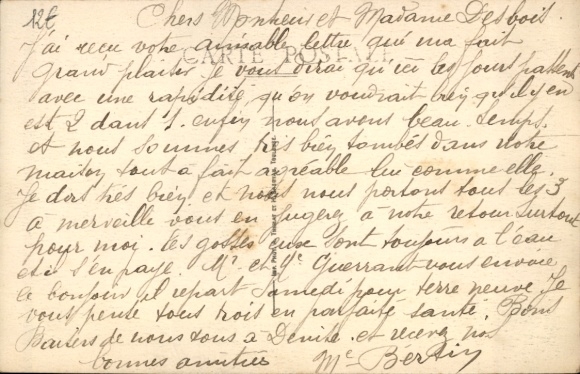 12€
Chers Monsieur et Madame Desbois.
J'ai reçu votre aimable lettre qui ma fait
CARTE POSTALE
grand plaisir je vous dirai qu'ici les jours passent
avec une rapidité, qu'on voudrait bien qu'il y en
est 2 dans 1. enfin nous avons beau temps.
et nous sommes très bien tombés dans notre
maison tout à fait agréable lui comme elle.
Je dors très bien et nous nous portons tous les 3
à merveille vous en jugerez à notre retour surtout
pour moi. les gosses eux sont toujours a l'eau
s'en paye. Mr et Me Guerrant vous envoie
le bonjour il repart samedi pour terre neuve. Je
vous pense tous trois en parfaite santé. Bons
Baisers de nous tous à Denise. et recevez nos
bonnes amitiés Me Bertin